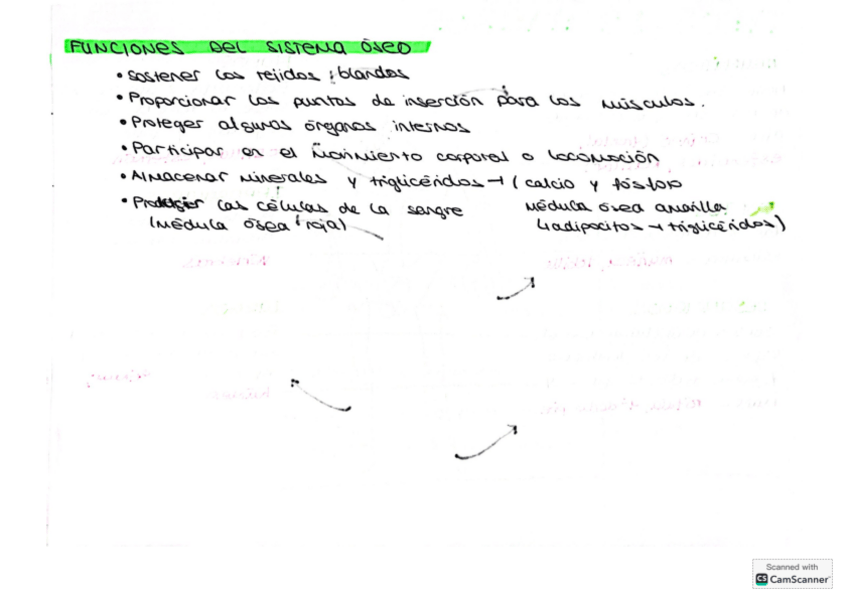 FUNCIONES DEL SISTEMA ÓSEO
• Sostener los tejidos blandos
• Proporcionar los puntos de inserción para los músculos.
• Proteger algunos órganos internos
• Participar en el movimiento corporal o locomoción
• Almacenar minerales y triglicéridos → ( calcio y fósforo
• Producir las células de la sangre médula ósea amarilla
(médula ósea roja) (adipocitos → triglicéridos)
Scanned with
CS CamScanner